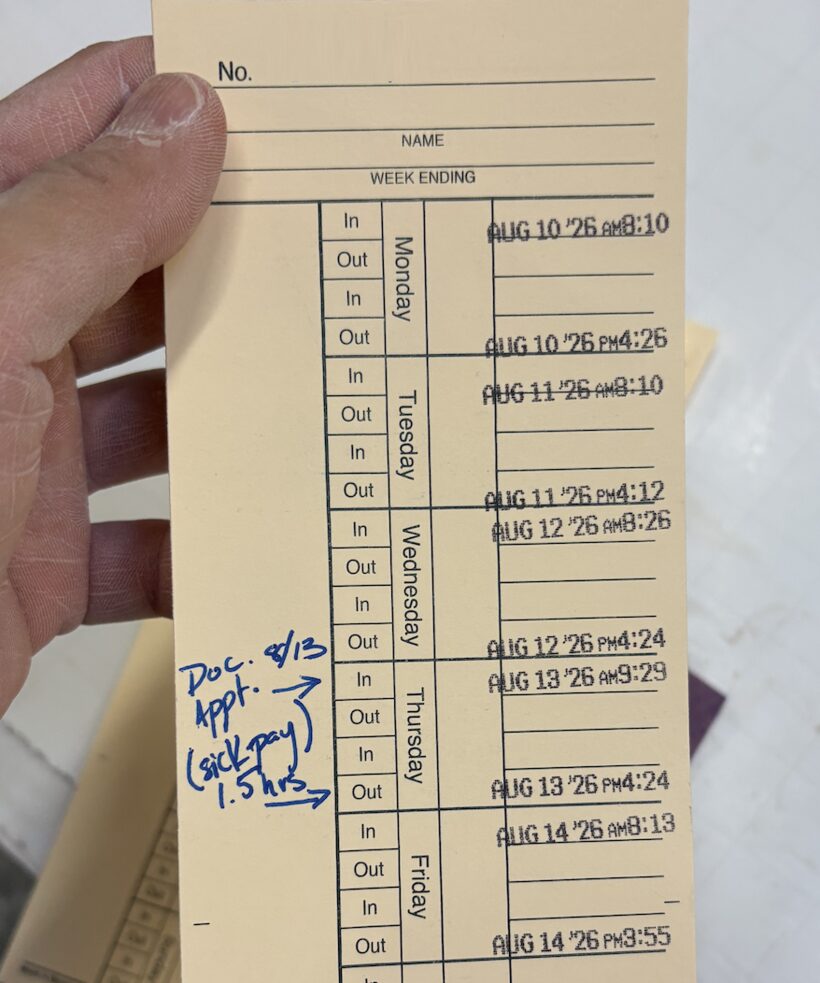 No.
NAME
WEEK ENDING
Monday
In AUG 10 '26 AM8:10
Out
In
Out AUG 10 '26 PM4:26
Tuesday
In AUG 11 '26 AM8:10
Out
In
Out AUG 11 '26 PM4:12
Wednesday
In AUG 12 '26 AM8:26
Out
In
Out AUG 12 '26 PM4:24
Doc. 8/13
Appt. →
(sick pay)
1.5 hrs →
Thursday
In AUG 13 '26 AM9:29
Out
In
Out AUG 13 '26 PM4:24
Friday
In AUG 14 '26 AM8:13
Out
In
Out AUG 14 '26 PM3:55
In